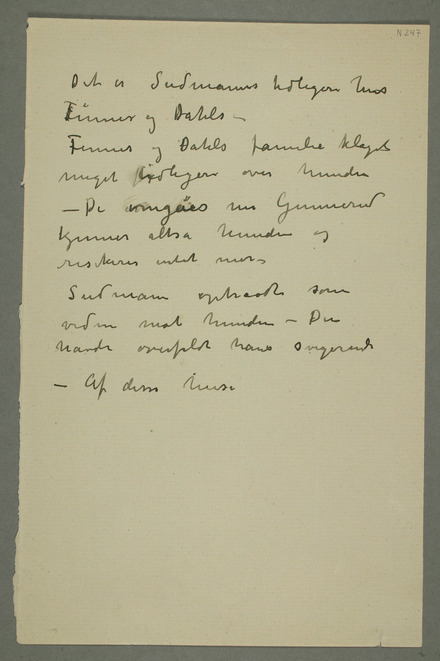 N 247
Det er Sudmanns tidligere hus
Finnes og Dahls –
Finnes og Dahls familie klaget
meget tidligere over hunden
– De omgåes nu Gunnerud
kjenner altså hunden og
risikerer intet mer –
Sudmann optraadte som
vidne mot hunden – Den
havde overfaldt hans svigerinde
– Af disse huse